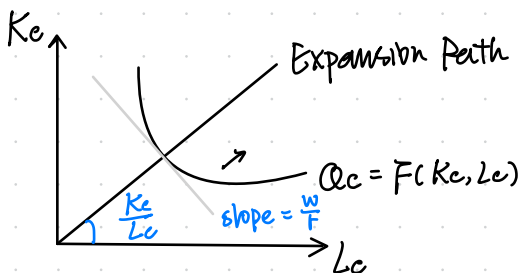 Kc
Expansion Path
Qc = F(Kc, Lc)
Kc
Lc
slope = w
F
Lc